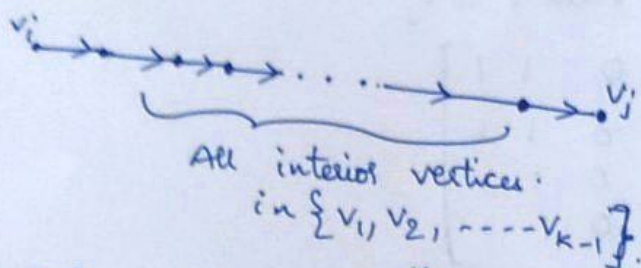 vi
vj
All interior vertices.
in {v1, v2, ----vk-1}.